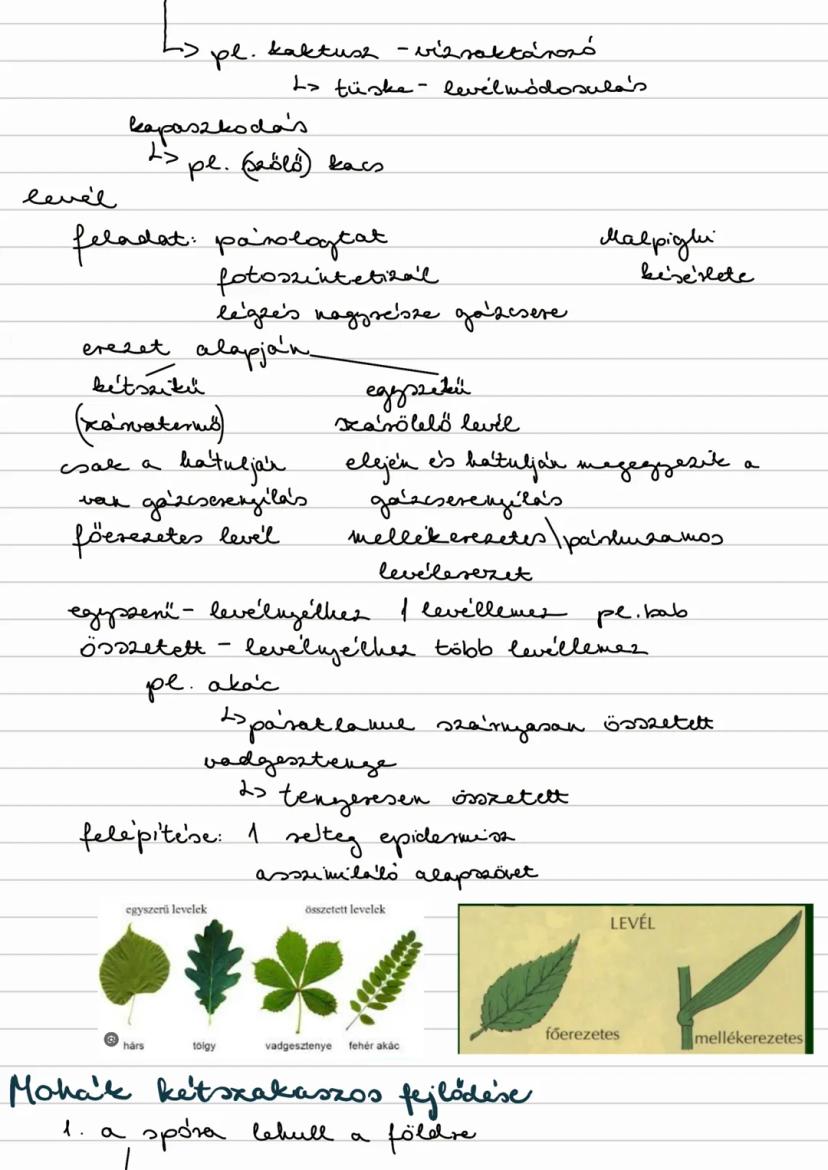 ↳ pl. kaktusz - vízraktározó
↳ tüske - levélmódosulás
kapaszkodás
↳ pl. (szőlő) kacs
levél
feladat: párologtat
Malpighi
fotoszintetizál
kísérlete
légzés nagyrésze gázcsere
erezet alapján
kétszikű
egyszikű
(zárvatermő)
szárölelő levél
csak a hátulján
elején és hátulján megegyezik a
van gázcserenyílás
gázcserenyílás
főerezetes levél
mellékerezetes\párhuzamos
levélerezet
egyszerű - levélnyélhez 1 levéllemez pl. bab
összetett - levélnyélhez több levéllemez
pl. akác
↳ páratlanul szárnyasan összetett
vadgesztenye
↳ tenyeresen összetett
felépítése: 1 réteg epidermisz
asszimiláló alapszövet
egyszerű levelek
összetett levelek
hárs
tölgy
vadgesztenye
fehér akác
LEVÉL
főerezetes
mellékerezetes
Mohák kétszakaszos fejlődése
1. a spóra lehull a földre